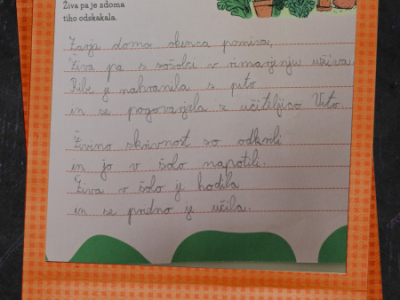 Živa pa je zdoma
tiho odskakala.
doma okenca pomiva,
Živa pa s sošolci v rimanjenju uživa.
Ribe je nahranila s pito
in se pogovarjala z učiteljico Vito.
Živino skrivnost so odkrili
in jo v šolo napotili.
Živa v šolo je hodila
in se pridno je učila.